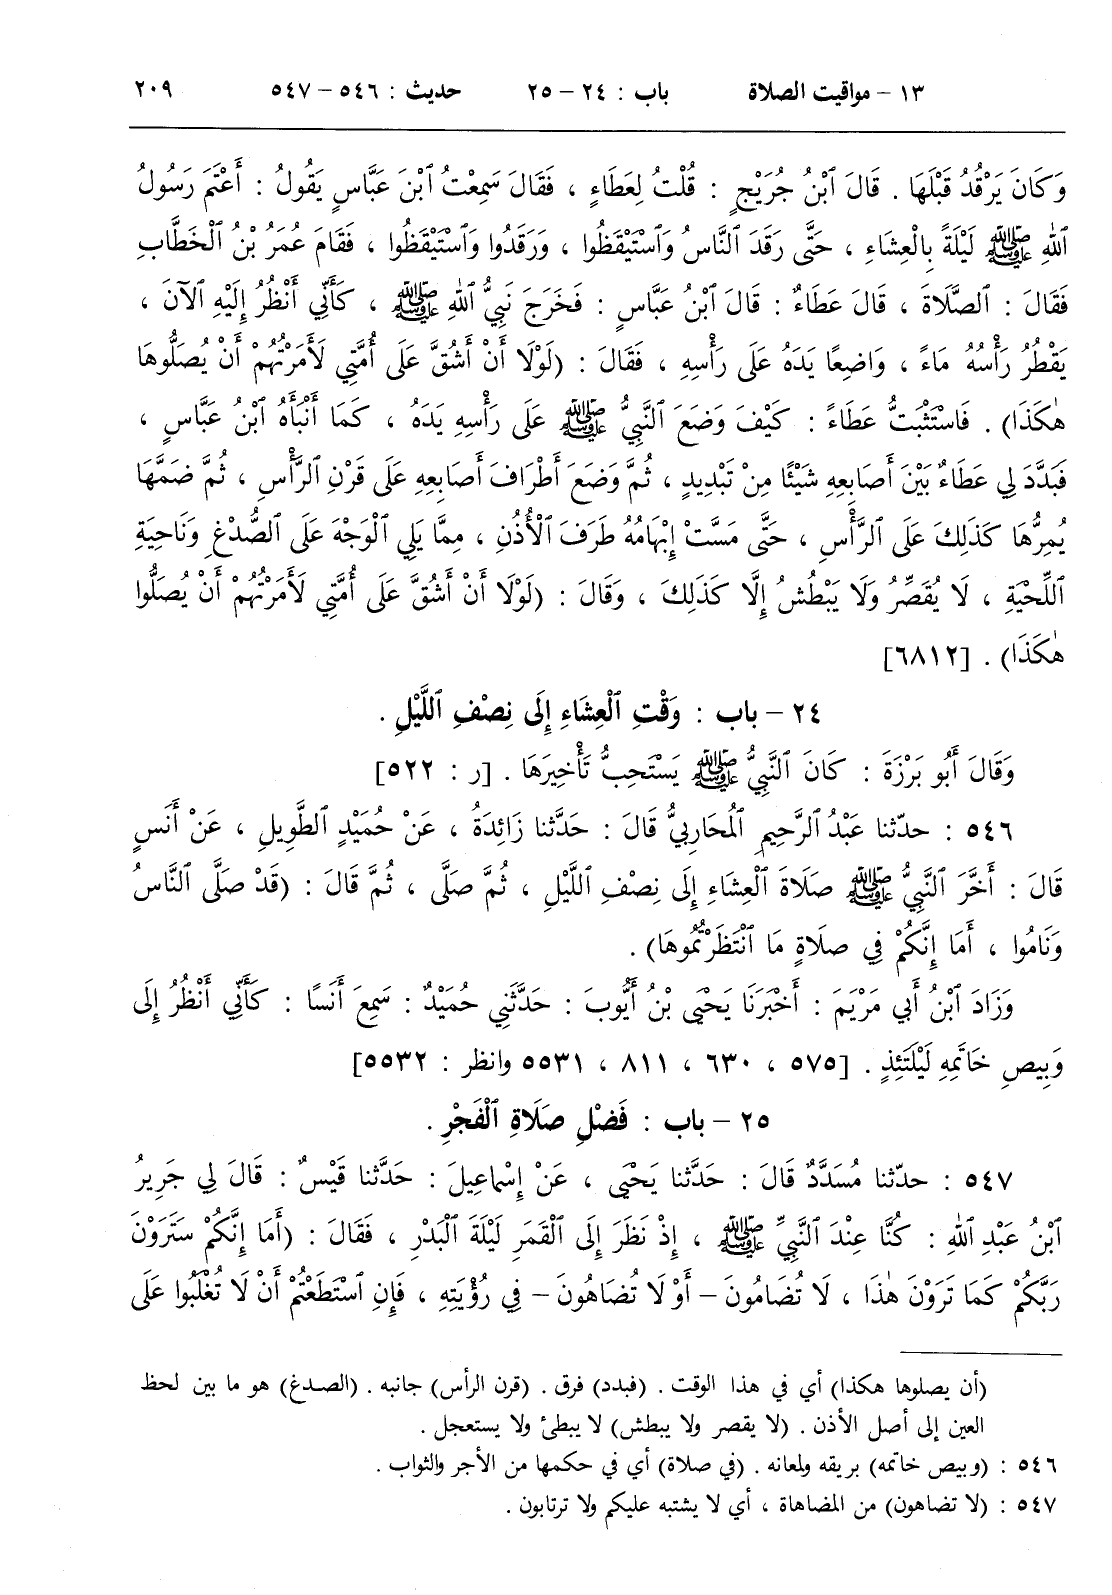 ١٣ – مواقيت الصلاة باب : ٢٤ – ٢٥ حديث : ٥٤٦ – ٥٤٧ ٢٠٩
وَكَانَ يَرْقُدُ قَبْلَهَا . قَالَ ٱبْنُ جُرَيْجٍ : قُلْتُ لِعَطَاءٍ ، فَقَالَ سَمِعْتُ ٱبْنَ عَبَّاسٍ يَقُولُ : أَعْتَمَ رَسُولُ
ٱللهِ ﷺ لَيْلَةً بِالْعِشَاءِ ، حَتَّى رَقَدَ ٱلنَّاسُ وَٱسْتَيْقَظُوا ، وَرَقَدُوا وَٱسْتَيْقَظُوا ، فَقَامَ عُمَرُ بْنُ ٱلْخَطَّابِ
فَقَالَ : ٱلصَّلَاةَ ، قَالَ عَطَاءٌ : قَالَ ٱبْنُ عَبَّاسٍ : فَخَرَجَ نَبِيُّ ٱللهِ ﷺ ، كَأَنِّي أَنْظُرُ إِلَيْهِ ٱلآنَ ،
يَقْطُرُ رَأْسُهُ مَاءً ، وَاضِعًا يَدَهُ عَلَى رَأْسِهِ ، فَقَالَ : (لَوْلَا أَنْ أَشُقَّ عَلَى أُمَّتِي لَأَمَرْتُهُمْ أَنْ يُصَلُّوهَا
هٰكَذَا) . فَاسْتَثْبَتُّ عَطَاءً : كَيْفَ وَضَعَ ٱلنَّبِيُّ ﷺ عَلَى رَأْسِهِ يَدَهُ ، كَمَا أَنْبَأَهُ ٱبْنُ عَبَّاسٍ ،
فَبَدَّدَ لِي عَطَاءٌ بَيْنَ أَصَابِعِهِ شَيْئًا مِنْ تَبْدِيدٍ ، ثُمَّ وَضَعَ أَطْرَافَ أَصَابِعِهِ عَلَى قَرْنِ ٱلرَّأْسِ ، ثُمَّ ضَمَّهَا
يُمِرُّهَا كَذَلِكَ عَلَى ٱلرَّأْسِ ، حَتَّى مَسَّتْ إِبْهَامُهُ طَرَفَ ٱلْأُذُنِ ، مِمَّا يَلِي ٱلْوَجْهَ عَلَى ٱلصُّدْغِ وَنَاحِيَةِ
ٱللِّحْيَةِ ، لَا يُقَصِّرُ وَلَا يَبْطُشُ إِلَّا كَذَلِكَ ، وَقَالَ : (لَوْلَا أَنْ أَشُقَّ عَلَى أُمَّتِي لَأَمَرْتُهُمْ أَنْ يُصَلُّوا
هٰكَذَا) . [٦٨١٢]
٢٤ – باب : وَقْتِ ٱلْعِشَاءِ إِلَى نِصْفِ ٱللَّيْلِ .
وَقَالَ أَبُو بَرْزَةَ : كَانَ ٱلنَّبِيُّ ﷺ يَسْتَحِبُّ تَأْخِيرَهَا . [ر : ٥٢٢]
٥٤٦ : حدّثنا عَبْدُ ٱلرَّحِيمِ ٱلْمُحَارِبِيُّ قَالَ : حَدَّثنا زَائِدَةُ ، عَنْ حُمَيْدٍ ٱلطَّوِيلِ ، عَنْ أَنَسٍ
قَالَ : أَخَّرَ ٱلنَّبِيُّ ﷺ صَلَاةَ ٱلْعِشَاءِ إِلَى نِصْفِ ٱللَّيْلِ ، ثُمَّ صَلَّى ، ثُمَّ قَالَ : (قَدْ صَلَّى ٱلنَّاسُ
وَنَامُوا ، أَمَا إِنَّكُمْ فِي صَلَاةٍ مَا ٱنْتَظَرْتُمُوهَا) .
وَزَادَ ٱبْنُ أَبِي مَرْيَمَ : أَخْبَرَنَا يَحْيَى بْنُ أَيُّوبَ : حَدَّثَنِي حُمَيْدٌ : سَمِعَ أَنَسًا : كَأَنِّي أَنْظُرُ إِلَى
وَبِيصِ خَاتَمِهِ لَيْلَتَئِذٍ . [٥٧٥ ، ٦٣٠ ، ٨١١ ، ٥٥٣١ وانظر : ٥٥٣٢]
٢٥ – باب : فَضْلِ صَلَاةِ ٱلْفَجْرِ .
٥٤٧ : حدّثنا مُسَدَّدٌ قَالَ : حَدَّثنا يَحْيَى ، عَنْ إِسْمَاعِيلَ : حَدَّثنا قَيْسٌ : قَالَ لِي جَرِيرُ
ٱبْنُ عَبْدِ ٱللهِ : كُنَّا عِنْدَ ٱلنَّبِيِّ ﷺ ، إِذْ نَظَرَ إِلَى ٱلْقَمَرِ لَيْلَةَ ٱلْبَدْرِ ، فَقَالَ : (أَمَا إِنَّكُمْ سَتَرَوْنَ
رَبَّكُمْ كَمَا تَرَوْنَ هٰذَا ، لَا تُضَامُونَ – أَوْ لَا تُضَاهُونَ – فِي رُؤْيَتِهِ ، فَإِنِ ٱسْتَطَعْتُمْ أَنْ لَا تُغْلَبُوا عَلَى
(أن يصلوها هكذا) أي في هذا الوقت . (فبدد) فرق . (قرن الرأس) جانبه . (الصدغ) هو ما بين لحظ
العين إلى أصل الأذن . (لا يقصر ولا يبطش) لا يبطئ ولا يستعجل .
٥٤٦ : (وبيص خاتمه) بريقه ولمعانه . (في صلاة) أي في حكمها من الأجر والثواب .
٥٤٧ : (لا تضاهون) من المضاهاة ، أي لا يشتبه عليكم ولا ترتابون .